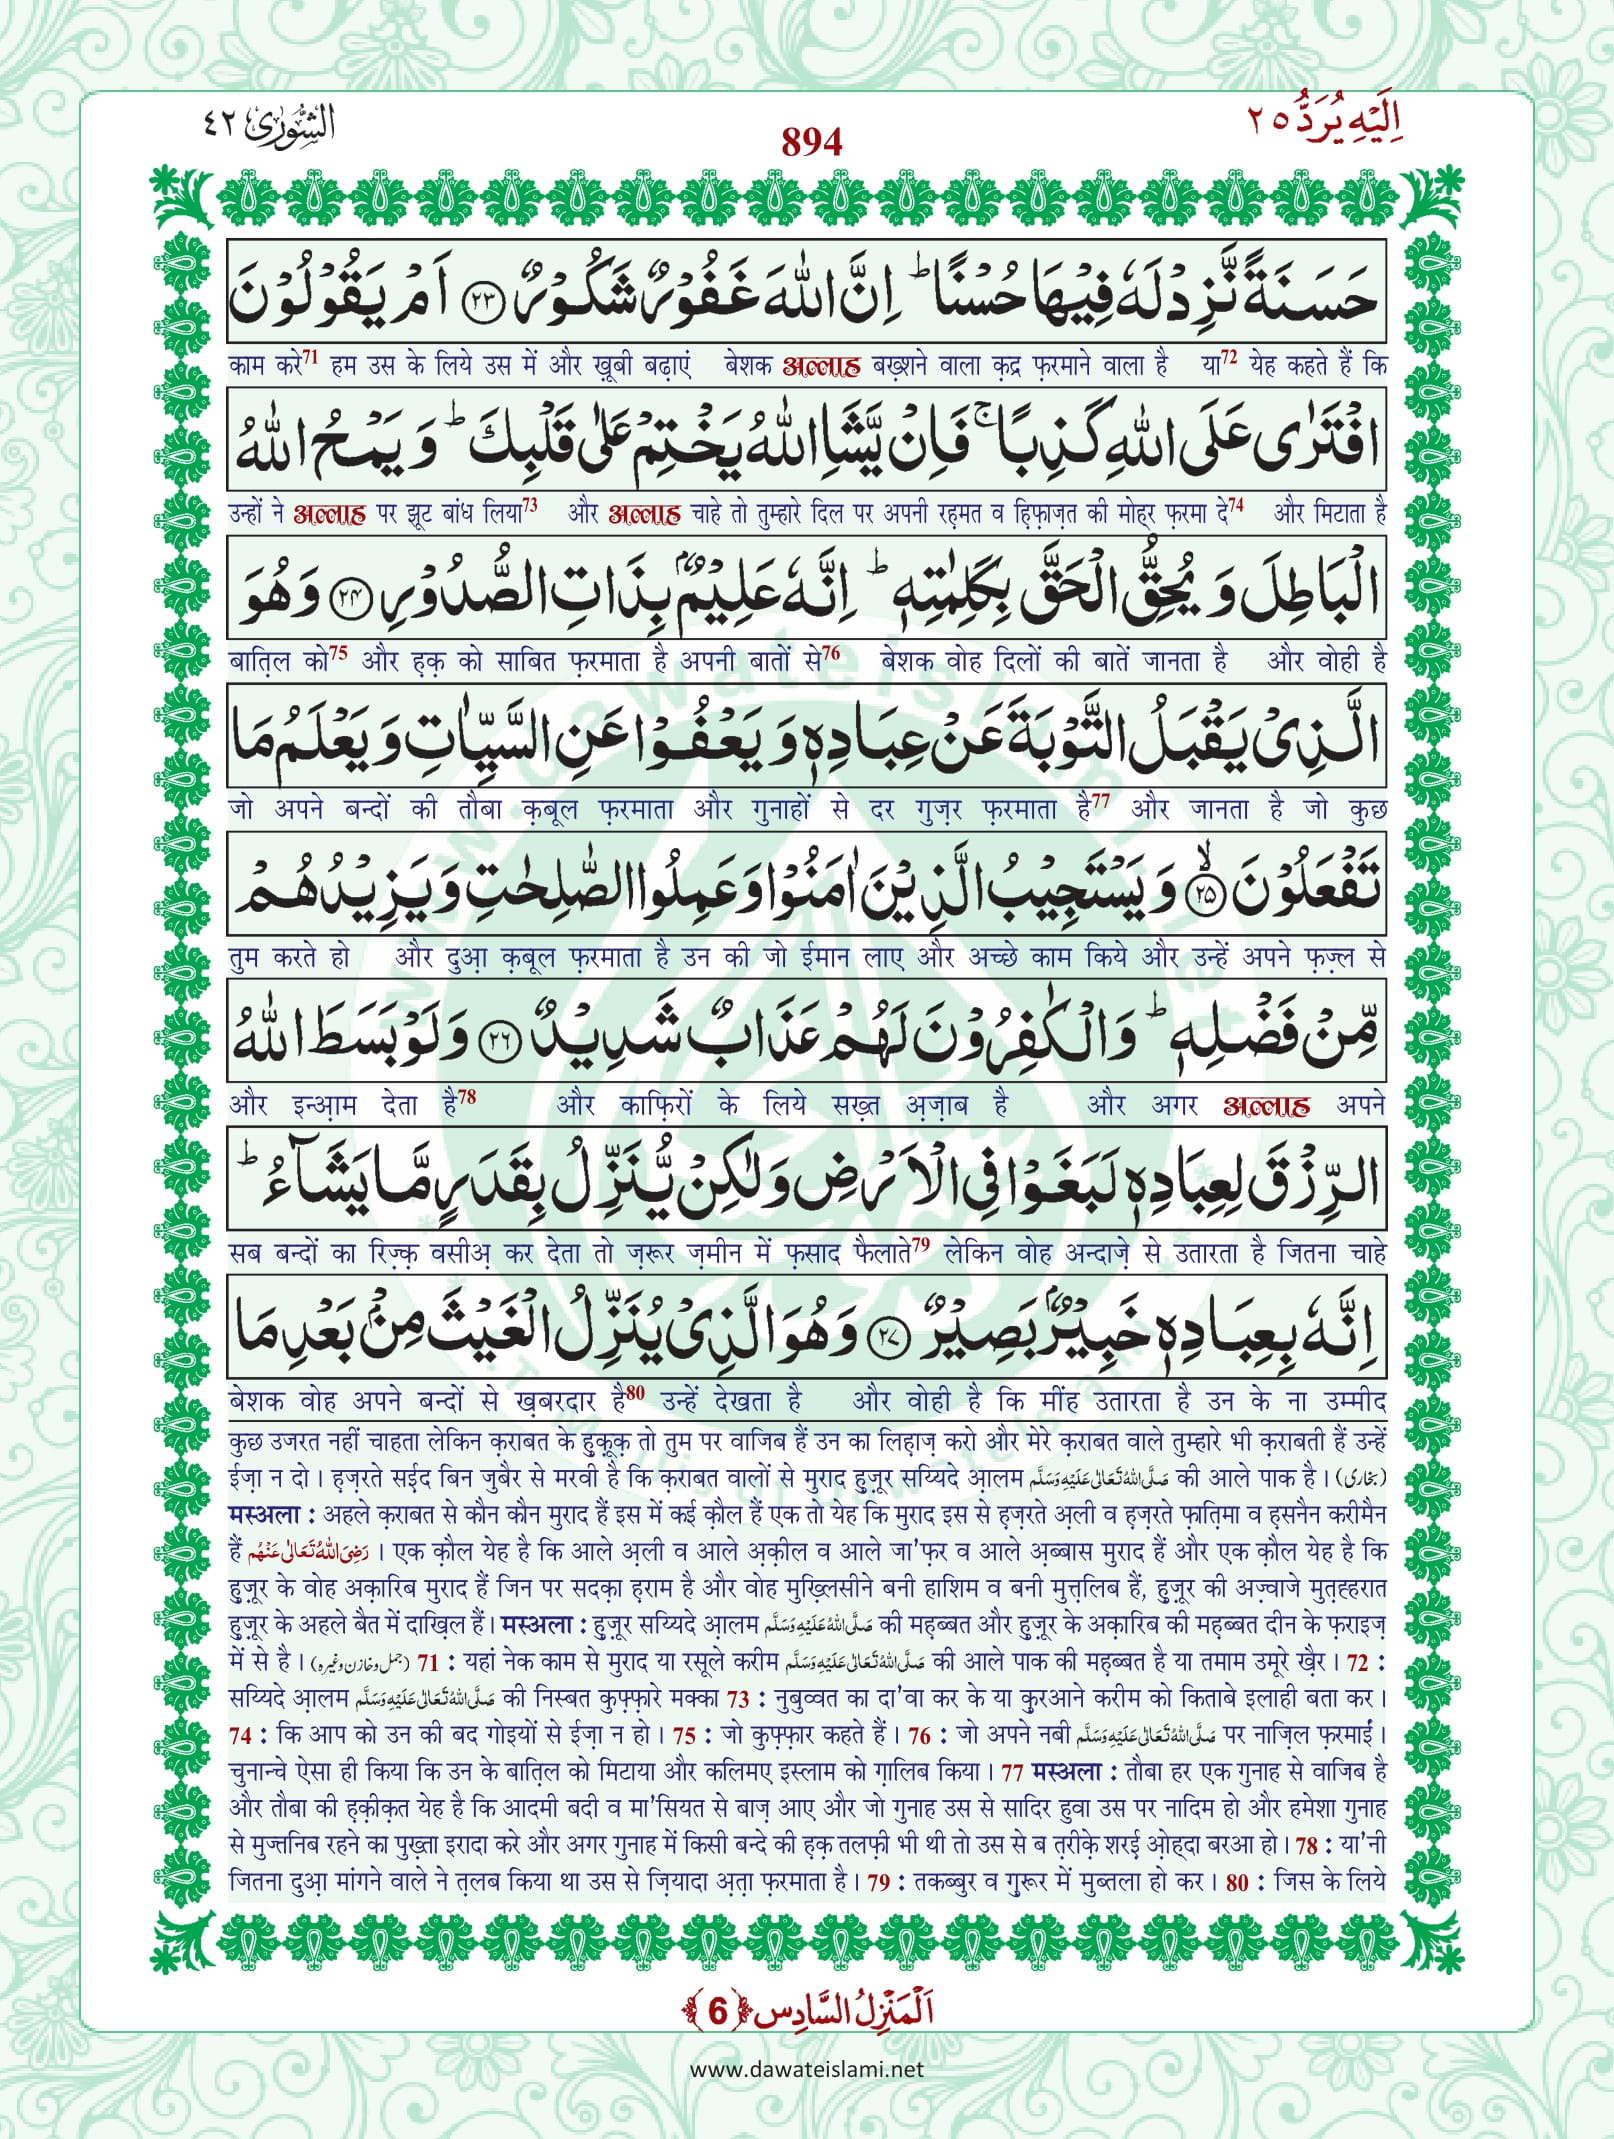 اِلَيْهِ يُرَدُّ ٢٥
894
الشُّوْرٰی ٤٢
حَسَنَةً نَّزِدْ لَهٗ فِيْهَا حُسْنًا ؕ اِنَّ اللّٰهَ غَفُوْرٌ شَكُوْرٌ ﴿۲۳﴾ اَمْ يَقُوْلُوْنَ
काम करे71 हम उस के लिये उस में और ख़ूबी बढ़ाएं बेशक अल्लाह बख़्शने वाला क़द्र फ़रमाने वाला है या72 येह कहते हैं कि
افْتَرٰى عَلَى اللّٰهِ كَذِبًا ۚ فَاِنْ يَّشَاِ اللّٰهُ يَخْتِمْ عَلٰى قَلْبِكَ ؕ وَ يَمْحُ اللّٰهُ
उन्हों ने अल्लाह पर झूट बांध लिया73 और अल्लाह चाहे तो तुम्हारे दिल पर अपनी रहमत व हिफ़ाज़त की मोहर फ़रमा दे74 और मिटाता है
الْبَاطِلَ وَ يُحِقُّ الْحَقَّ بِكَلِمٰتِهٖ ؕ اِنَّهٗ عَلِيْمٌۢ بِذَاتِ الصُّدُوْرِ ﴿۲۴﴾ وَ هُوَ
बातिल को75 और ह़क़ को साबित फ़रमाता है अपनी बातों से76 बेशक वोह दिलों की बातें जानता है और वोही है
الَّذِيْ يَقْبَلُ التَّوْبَةَ عَنْ عِبَادِهٖ وَ يَعْفُوْا عَنِ السَّيِّاٰتِ وَ يَعْلَمُ مَا
जो अपने बन्दों की तौबा क़बूल फ़रमाता और गुनाहों से दर गुज़र फ़रमाता है77 और जानता है जो कुछ
تَفْعَلُوْنَ ﴿۲۵﴾ۙ وَ يَسْتَجِيْبُ الَّذِيْنَ اٰمَنُوْا وَ عَمِلُوا الصّٰلِحٰتِ وَ يَزِيْدُهُمْ
तुम करते हो और दुआ़ क़बूल फ़रमाता है उन की जो ईमान लाए और अच्छे काम किये और उन्हें अपने फ़ज़्ल से
مِّنْ فَضْلِهٖ ؕ وَ الْكٰفِرُوْنَ لَهُمْ عَذَابٌ شَدِيْدٌ ﴿۲۶﴾ وَ لَوْ بَسَطَ اللّٰهُ
और इन्आ़म देता है78 और काफ़िरों के लिये सख़्त अ़ज़ाब है और अगर अल्लाह अपने
الرِّزْقَ لِعِبَادِهٖ لَبَغَوْا فِي الْاَرْضِ وَ لٰكِنْ يُّنَزِّلُ بِقَدَرٍ مَّا يَشَآءُ ؕ
सब बन्दों का रिज़्क़ वसीअ़ कर देता तो ज़रूर ज़मीन में फ़साद फैलाते79 लेकिन वोह अन्दाज़े से उतारता है जितना चाहे
اِنَّهٗ بِعِبَادِهٖ خَبِيْرٌۢ بَصِيْرٌ ﴿۲۷﴾ وَ هُوَ الَّذِيْ يُنَزِّلُ الْغَيْثَ مِنْۢ بَعْدِ مَا
बेशक वोह अपने बन्दों से ख़बरदार है80 उन्हें देखता है और वोही है कि मींह उतारता है उन के ना उम्मीद
कुछ उजरत नहीं चाहता लेकिन क़राबत के हुक़ूक़ तो तुम पर वाजिब हैं उन का लिहाज़ करो और मेरे क़राबत वाले तुम्हारे भी क़राबती हैं उन्हें
ईज़ा न दो। ह़ज़रते सई़द बिन जुबैर से मरवी है कि क़राबत वालों से मुराद हुज़ूर सय्यिदे आ़लम صَلَّى اللهُ تَعَالٰى عَلَيْهِ وَسَلَّم की आले पाक है। (بخاری)
मस्अला : अहले क़राबत से कौन कौन मुराद हैं इस में कई क़ौल हैं एक तो येह कि मुराद इस से ह़ज़रते अ़ली व ह़ज़रते फ़ातिमा व ह़सनैन करीमैन
हैं رَضِیَ اللهُ تَعَالٰى عَنْهُم । एक क़ौल येह है कि आले अ़ली व आले अ़क़ील व आले जा'फ़र व आले अ़ब्बास मुराद हैं और एक क़ौल येह है कि
हुज़ूर के वोह अक़ारिब मुराद हैं जिन पर सदक़ा ह़राम है और वोह मुख़्लिसीने बनी हाशिम व बनी मुत्तलिब हैं, हुज़ूर की अज़्वाजे मुतह्हरात
हुज़ूर के अहले बैत में दाख़िल हैं। मस्अला : हुज़ूर सय्यिदे आ़लम صَلَّى اللهُ عَلَيْهِ وَسَلَّم की मह़ब्बत और हुज़ूर के अक़ारिब की मह़ब्बत दीन के फ़राइज़
में से है। (جمل و خازن وغیرہ) 71 : यहां नेक काम से मुराद या रसूले करीम صَلَّى اللهُ تَعَالٰى عَلَيْهِ وَسَلَّم की आले पाक की मह़ब्बत है या तमाम उमूरे ख़ैर। 72 :
सय्यिदे आ़लम صَلَّى اللهُ تَعَالٰى عَلَيْهِ وَسَلَّم की निस्बत कुफ़्फ़ारे मक्का 73 : नुबुव्वत का दा'वा कर के या क़ुरआने करीम को किताबे इलाही बता कर।
74 : कि आप को उन की बद गोइयों से ईज़ा न हो। 75 : जो कुफ़्फ़ार कहते हैं। 76 : जो अपने नबी صَلَّى اللهُ تَعَالٰى عَلَيْهِ وَسَلَّم पर नाज़िल फ़रमाईं।
चुनान्चे ऐसा ही किया कि उन के बातिल को मिटाया और कलिमए इस्लाम को ग़ालिब किया। 77 मस्अला : तौबा हर एक गुनाह से वाजिब है
और तौबा की ह़क़ीक़त येह है कि आदमी बदी व मा'सियत से बाज़ आए और जो गुनाह उस से सादिर हुवा उस पर नादिम हो और हमेशा गुनाह
से मुज्तनिब रहने का पुख़्ता इरादा करे और अगर गुनाह में किसी बन्दे की ह़क़ तलफ़ी भी थी तो उस से ब त़रीक़े शरई़ ओ़ह्दा बरआ हो। 78 : या'नी
जितना दुआ़ मांगने वाले ने त़लब किया था उस से ज़ियादा अ़ता फ़रमाता है। 79 : तकब्बुर व ग़ुरूर में मुब्तला हो कर। 80 : जिस के लिये
اَلْمَنْزِلُ السَّادِس ﴿6﴾
www.dawateislami.net